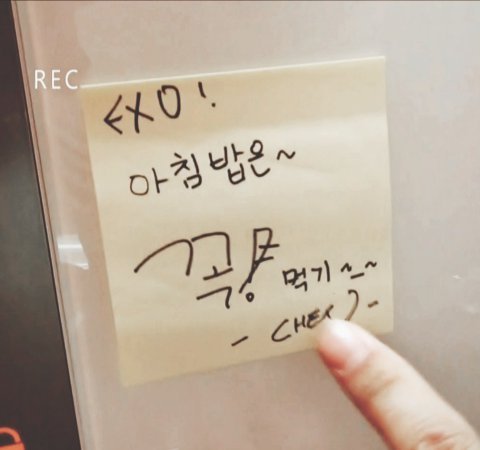 REC
EXO!
아침밥은~
꼭! 먹기~_~
- CHEN -